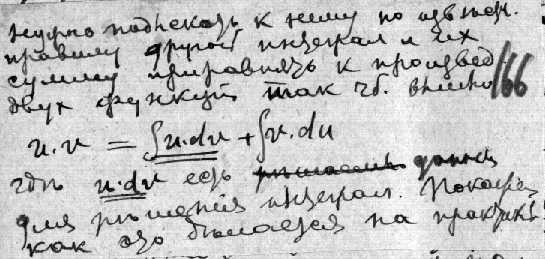 нужно подыскать к нему по извѣстн.
правилу другой интеграл и их
сумму приравнять к произвед
двух функцiй так чб. вышло 166
u.v = ∫u.dv + ∫v.du
гдѣ u.dv есть данный
для рѣшенiя интеграл. Покажем
как это дѣлается на практикѣ